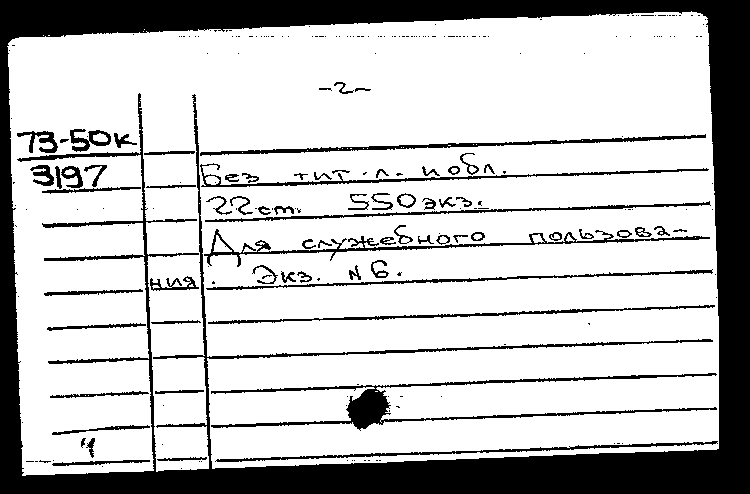 -2-
73-50к
3197
Без тит. л. и обл.
22 ст. 550 экз.
Для служебного пользова-
ния. Экз. N 6.